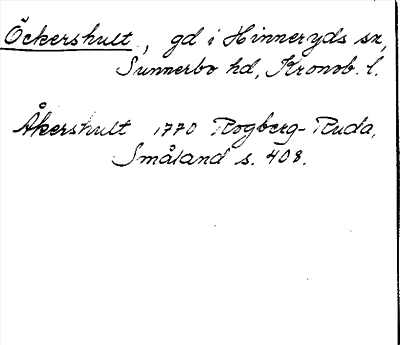 Öckershult, gd i Hinneryds sn,
Sunnerbo hd, Kronob. l.
Åkershult 1770 Rogberg-Ruda,
Småland s. 408.